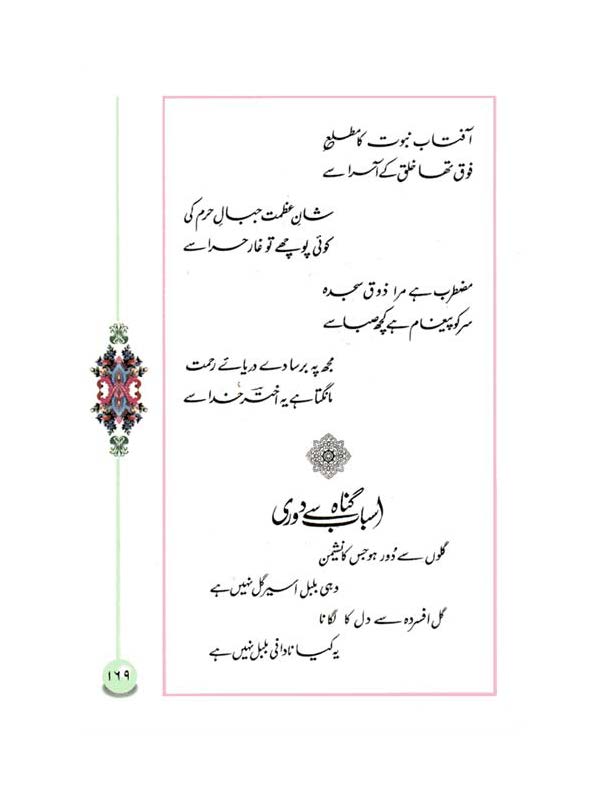 آفتاب نبوت کا مطلع
فوق تھا خلق کے آسرا سے
شانِ عظمت جبالِ حرم کی
کوئی پوچھے تو غار حرا سے
مضطرب ہے مرا ذوق سجدہ
سر کو پیغام ہے کچھ صبا سے
مجھ پہ برسا دے دریائے رحمت
مانگتا ہے یہ اختؔر خدا سے
اسباب گناہ سے دوری
گلوں سے دُور ہو جس کا نشیمن
وہی بلبل اسیر گل نہیں ہے
گل افسردہ سے دل کا لگانا
یہ کیا نادانی بلبل نہیں ہے
۱۶۹